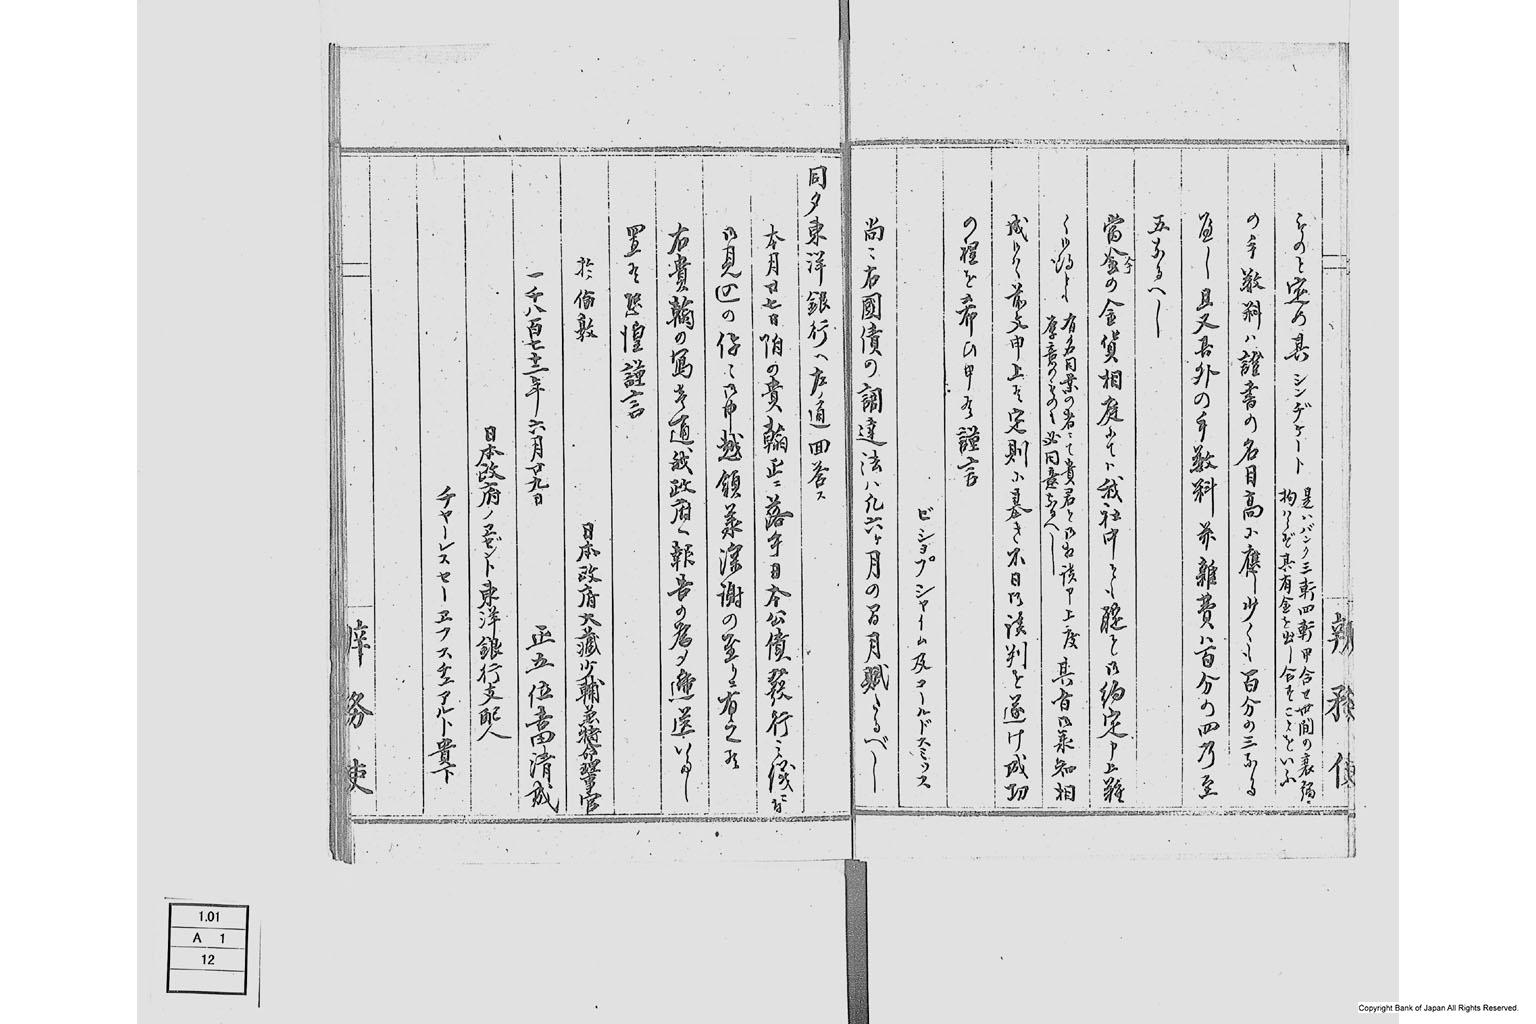 ものと定め其シンヂケート 是ハバンク三軒四軒申合せ世間の衰弱ニ
拘ハらず其有金を出し合すことをいふ
の手数料ハ證書の名目高に應少くも百分の三なる
べし且又吾外の手数料并雑費ハ百分の四乃至
五なるへし
當今の金貨相庭にてハ我社中とも聢と御約定申上難
有名同業の者にて貴君と御相談申上度其者御承知相
成候ハゝ前文申上候定則に基き不日御談判を遂け成功
の程を希ひ申候謹言
ビショプシャイム及コールドスミッス
尚ニ右國債の調達法ハ凡六ヶ月の間月賦たるべし
同夕東洋銀行ヘ左ノ通回答ス
本月廿七日附の貴翰正ニ落手日本公債發行之儀ニ付
御見込の件々御申越領承深謝の至りニ有之候
右貴翰の寫者道我政府へ報告の為メ逓送いたし
置候恐惶謹言
於倫敦
日本政府大蔵少輔兼特命理事官
一千八百七十二年六月廿九日 正五位吉田清成
日本政府ノエゼント東洋銀行支配人
チャーレスセーエフスチュアルト貴下
辨務使
1.01
A 1
12
Copyright Bank of Japan All Rights Reserved.